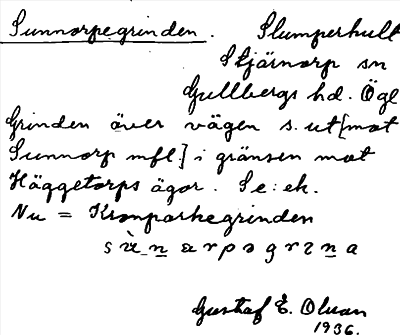 Sunnorpegrinden. Slumperhult
Stjärnorp sn
Gullbergs hd. Ögl
Grinden över vägen s. ut [mot
Sunnorp mfl.] i gränsen mot
Häggetorps ägor. Se: ek.
Nu = Kronparkegrinden
Gustaf E. Olsson
1936.